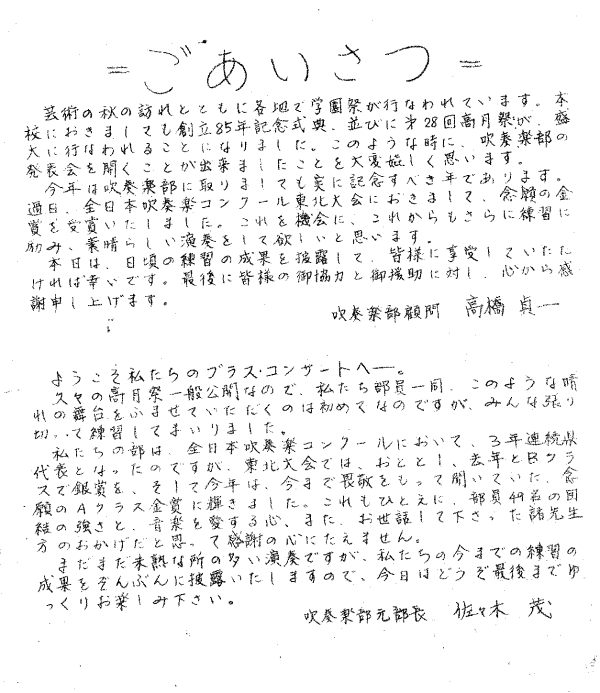 =ごあいさつ=
芸術の秋の訪れとともに各地で学園祭が行なわれています。本
校におきましても創立85年記念式典、並びに第28回高月祭が、盛
大に行なわれることになりました。このような時に、吹奏楽部の
発表会を開くことが出来ましたことを大変嬉しく思います。
今年は吹奏楽部に取りましても実に記念すべき年であります。
過日、全日本吹奏楽コンクール東北大会におきまして、念願の金
賞を受賞いたしました。これを機会に、これからもさらに練習に
励み、素晴らしい演奏をして欲しいと思います。
本日は、日頃の練習の成果を披露して、皆様に享受していただ
ければ幸いです。最後に皆様の御協力と御援助に対し、心から感
謝申し上げます。
吹奏楽部顧問 高橋貞一
ようこそ私たちのブラス・コンサートへ──。
久々の高月祭一般公開なので、私たち部員一同、このような晴
れの舞台をふませていただくのは初めてなのですが、みんな張り
切って練習してまいりました。
私たちの部は、全日本吹奏楽コンクールにおいて、3年連続県
代表となったのですが、東北大会では、おととし、去年とBクラ
スで銀賞を、そして今年は、今まで畏敬をもって聞いていた、念
願のAクラス金賞に輝きました。これもひとえに、部員49名の団
結の強さと、音楽を愛する心、また、お世話して下さった諸先生
方のおかげだと思って感謝の心にたえません。
まだまだ未熟な所の多い演奏ですが、私たちの今までの練習の
成果をぞんぶんに披露いたしますので、今日はどうぞ最後までゆ
っくりお楽しみ下さい。
吹奏楽部元部長 佐々木 茂